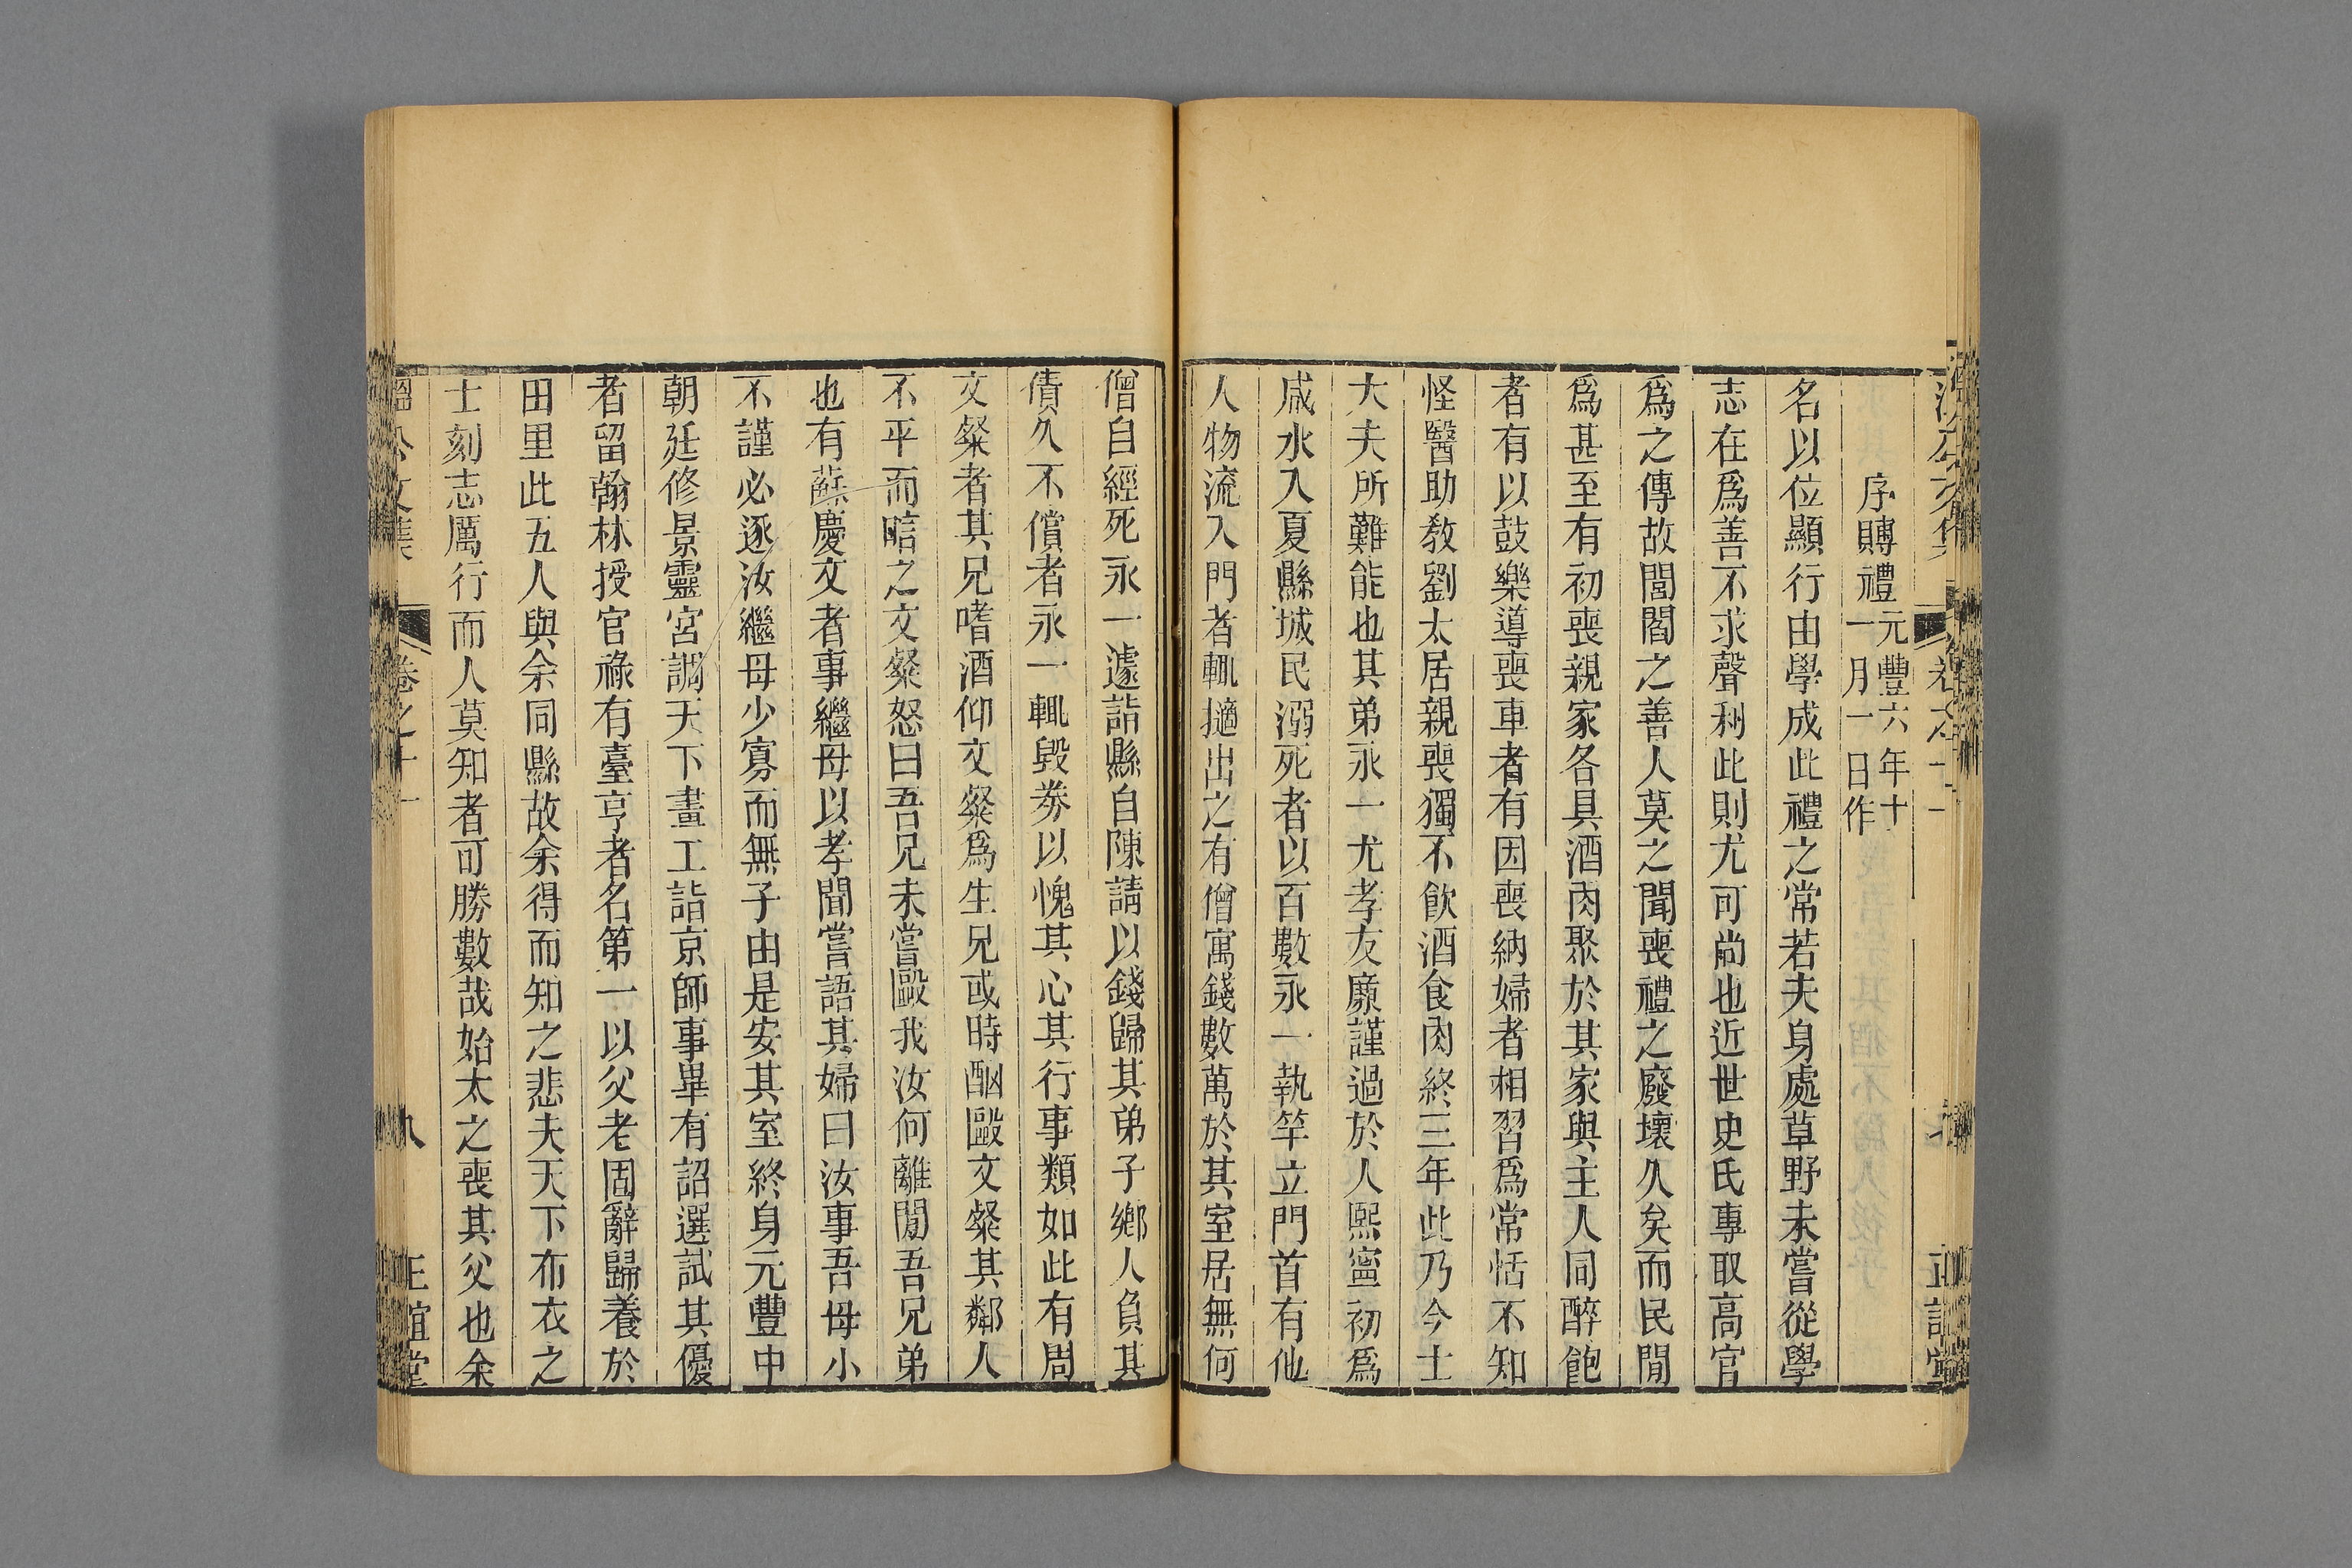 序賻禮元豐六年十
一月一日作
名以位顯行由學成此禮之常若夫身處草野未嘗從學
志在爲善不求聲利此則尤可尚也近世史氏專取高官
爲之傳故閭閻之善人莫之聞喪禮之廢壞久矣而民閒
爲甚至有初喪親家各具酒肉聚於其家與主人同醉飽
者有以鼓樂導喪車者有因喪納婦者相習爲常恬不知
怪醫助敎劉太居親喪獨不飮酒食肉終三年此乃今士
大夫所難能也其弟永一尤孝友廉謹過於人熙寧初爲
咸水入夏縣城民溺死者以百數永一執竿立門首有他
人物流入門者輒擿出之有僧寓錢數萬於其室居無何
僧自經死永一遽詣縣自陳請以錢歸其弟子鄉人負其
債久不償者永一輒毀券以愧其心其行事類如此有周
文粲者其兄嗜酒仰文粲爲生兄或時酗毆文粲其鄰人
不平而唁之文粲怒曰吾兄未嘗毆我汝何離閒吾兄弟
也有蘇慶文者事繼母以孝聞嘗語其婦曰汝事吾母小
不謹必逐汝繼母少寡而無子由是安其室終身元豐中
朝廷修景靈宮調天下畫工詣京師事畢有詔選試其優
者留翰林授官祿有臺亨者名第一以父老固辭歸養於
田里此五人與余同縣故余得而知之悲夫天下布衣之
士刻志厲行而人莫知者可勝數哉始太之喪其父也余
溫公文集 卷之十一 九 正誼堂